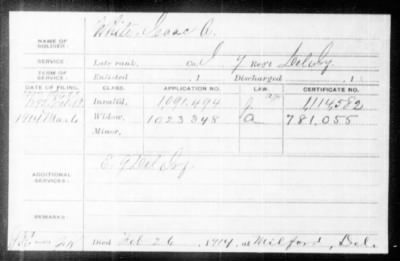 NAME OF SOLDIER: White, Isaac A.
SERVICE: Late rank, Co. I, 7 Reg't Del. Inf.
TERM OF SERVICE: Enlisted , 1 Discharged , 1
DATE OF FILING. CLASS. APPLICATION NO. LAW. CERTIFICATE NO.
Invalid, 1091,494 1,114,582
1914 Mar 6 Widow, 1023,348 781,055
Minor,
ADDITIONAL SERVICES: E. 9 Del. Inf.
REMARKS:
Died Feb 26, 1914, at Milford, Del.